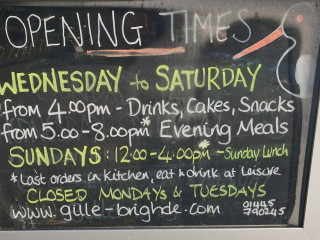 OPENING TIMES
WEDNESDAY to SATURDAY
from 4.00pm - Drinks, Cakes, Snacks
from 5.00-8.00pm* Evening Meals
SUNDAYS: 12:00-4:00pm* - Sunday Lunch
*Last orders in kitchen, eat & drink at leisure
CLOSED MONDAYS & TUESDAYS
www.gille-brighde.com 01445 790245